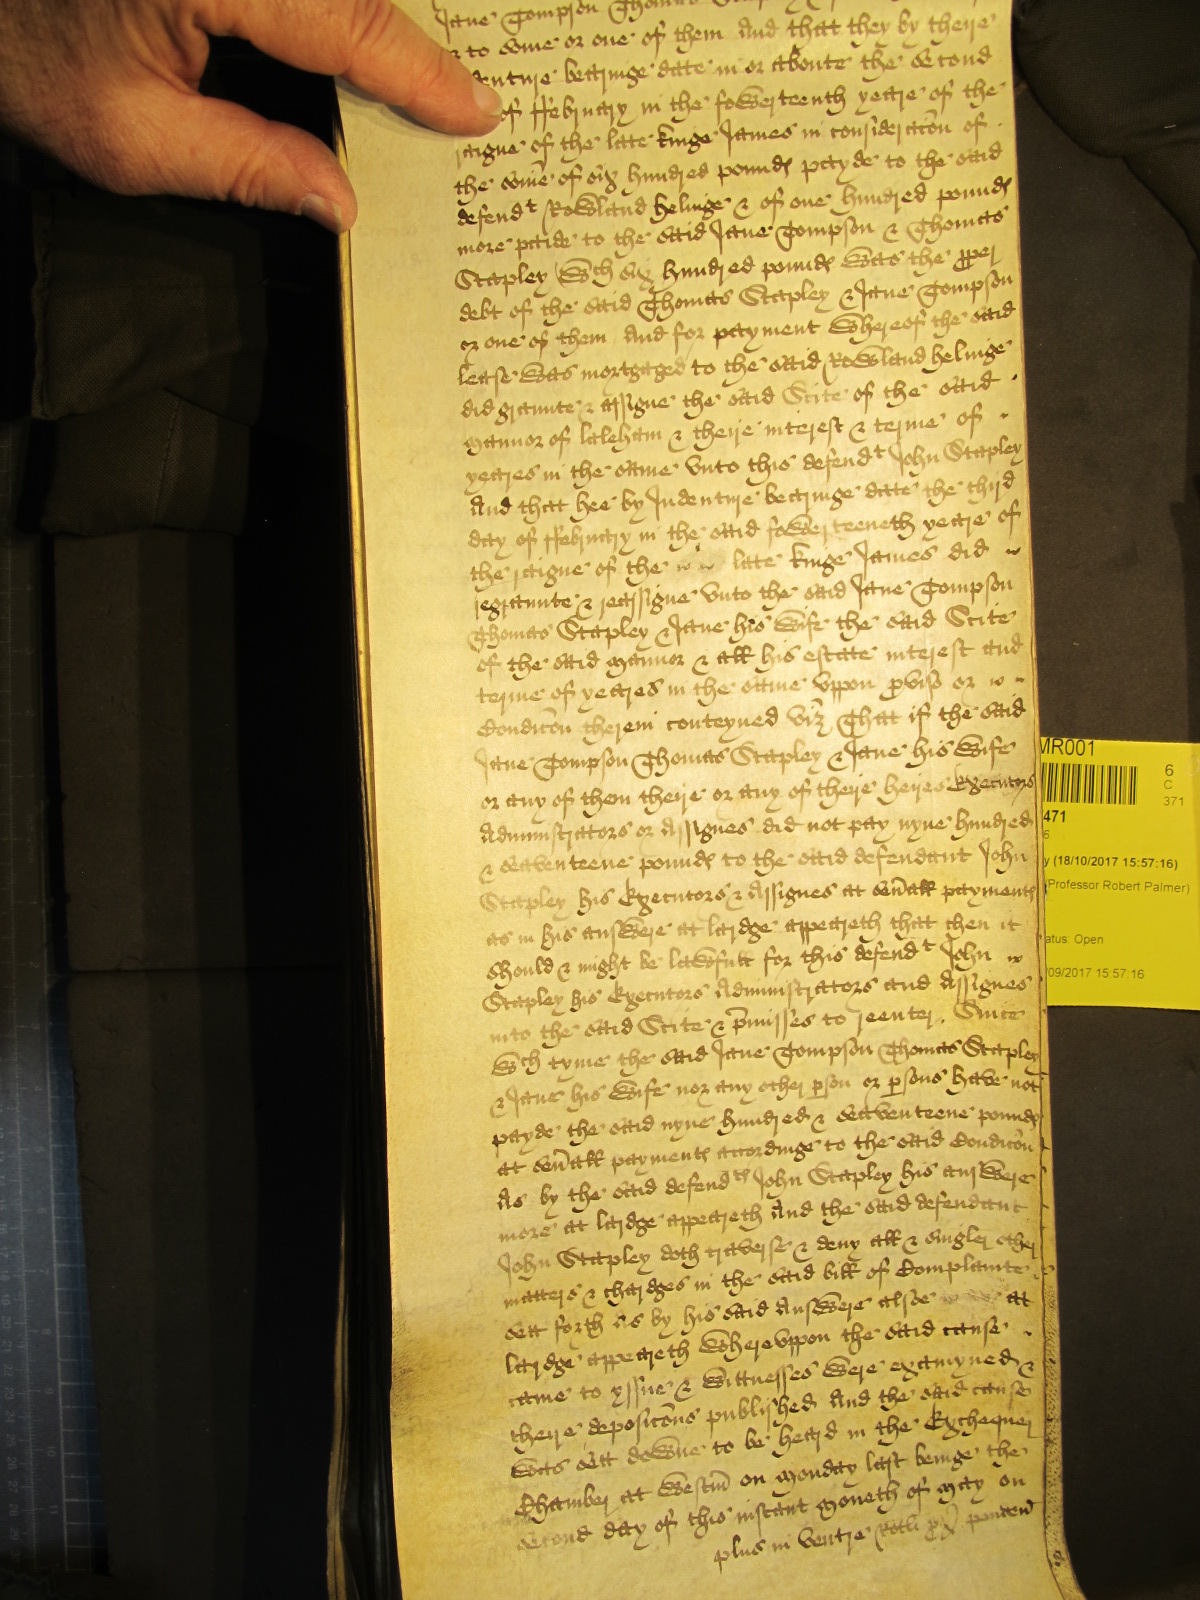 Jane Tompson Thomas Stapley
or to some or one of them And that they by theire
Indenture bearinge date in or aboute the second
of ffebruary in the fowerteenth yeare of the
raigne of the late kinge James in consideracõn of
the some of six hundred pounds payde to the said
defendt Rowland helinge & of one hundred pounds
more paide to the said Jane Tompson & Thomas
Stapley wch six hundred pounds was the pper
debt of the said Thomas Stapley & Jane Tompson
or one of them And for payment whereof the said
lease was mortgaged to the said Rowland helinge
did graunte & assigne the said Scite of the said
mannor of laleham & theire interest & terme of
yeares in the same vnto this defendt John Stapley
And that hee by Indenture bearinge date the third
day of ffebruary in the said fowerteeneth yeare of
the raigne of the late kinge James did
regraunte & reassigne vnto the said Jane Tompson
Thomas Stapley & Jane his wife the said Scite
of the said mannor & all his estate interest and
terme of yeares in the same vppon pviso or
Condicõn therein conteyned vizt That if the said
Jane Tompson Thomas Stapley & Jane his wife
or any of them theire or any of theire heires Executors
Administrators or Assignes did not pay nyne hundred
& seaventeene pounds to the said defendant John
Stapley his Executors & Assignes at seũall payments
as in his answere at lardge appeareth that then it
should & might be lawfull for this defendt John
Stapley his Executors Administrators and Assignes
into the said Scite & pmisses to reenter. Since
wch tyme the said Jane Tompson Thomas Stapley
& Jane his wife nor any other pson or psons have not
payde the said nyne hundred & seaventeene pounds
at seũall payments accordinge to the said Condicõn
As by the said defendts John Stapley his answere
more at lardge appeareth And the said defendant
John Stapley doth traverse & deny all & singler other
matters & chardges in the said bill of Complainte
sett forth As by his said Answere alsoe at
lardge appeareth Wherevppon the said cause
came to yssue & wittnesses were examyned &
theire deposicõns published And the said cause
was sett downe to be heard in the Exchequer
Chamber at Westm̃ on monday last beinge the
second day of this instant moneth of May on
plus in ventre Rotli
MR001
6
C
371
471
6
y (18/10/2017 15:57:16)
(Professor Robert Palmer)
atus: Open
/09/2017 15:57:16